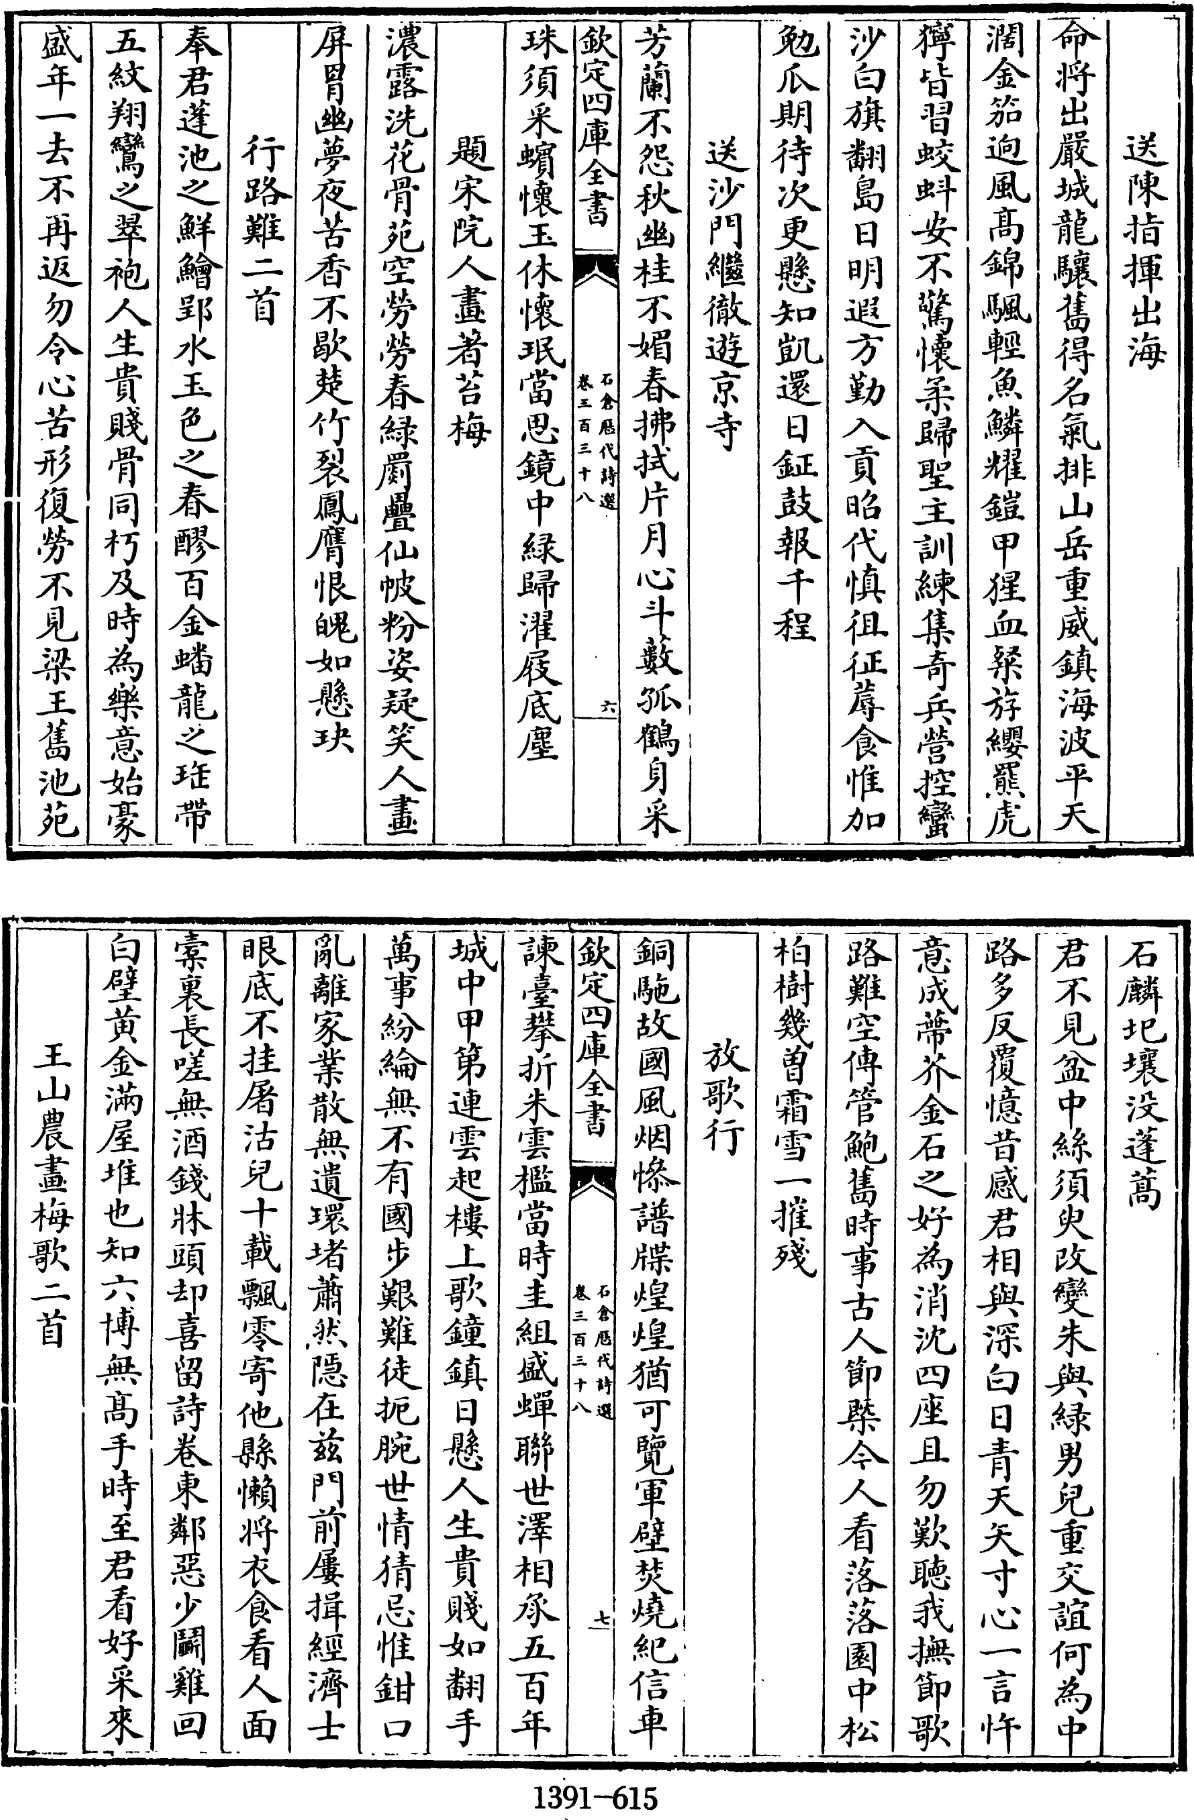 送陳指揮出海
命將出嚴城龍驤舊得名氣排山岳重威鎮海波平天
濶金笳逈風髙錦颿輕魚鱗耀鎧甲猩血粲斿纓羆虎
獰皆習蛟蚪安不驚懷柔歸聖主訓練集奇兵營控蠻
沙白旗翻島日明遐方勤入貢昭代慎徂征蓐食惟加
勉瓜期待次更懸知凱還日鉦鼓報千程
送沙門繼徹遊京寺
芳蘭不怨秋幽桂不媚春拂拭片月心斗藪孤鶴身采
欽定四庫全書
石倉歷代詩選
卷三百三十八
六
珠須采蠙懷玉休懷珉當思鏡中緑歸濯屐底塵
題宋院人畫著苔梅
濃露洗花骨苑空勞勞春緑罽疊仙帔粉姿疑笑人畫
屏胃幽夢夜苦香不歇楚竹裂鳳膺恨魄如懸玦
行路難二首
奉君蓬池之鮮鱠郢水玉色之春醪百金蟠龍之珤帶
五紋翔鸞之翠袍人生貴賤骨同朽及時為樂意始豪
盛年一去不再返勿令心苦形復勞不見梁王舊池苑
石麟圯壤没蓬蒿
君不見盆中絲須臾改變朱與緑男兒重交誼何為中
路多反覆憶昔感君相與深白日青天矢寸心一言忤
意成蔕芥金石之好為消沈四座且勿歎聽我撫節歌
路難空傳管鮑舊時事古人節槩今人看落落園中松
柏樹幾曽霜雪一摧殘
放歌行
銅駞故國風烟慘譜牒煌煌猶可覽軍壁焚燒紀信車
欽定四庫全書
石倉歷代詩選
卷三百三十八
七
諫臺攀折朱雲檻當時圭組盛蟬聯世澤相承五百年
城中甲第連雲起樓上歌鐘鎮日懸人生貴賤如翻手
萬事紛綸無不有國步艱難徒扼腕世情猜忌惟鉗口
亂離家業散無遺環堵蕭然隠在兹門前屢揖經濟士
眼底不挂屠沽兒十載飄零寄他縣懶將衣食看人面
橐裏長嗟無酒錢牀頭却喜留詩卷東鄰惡少鬬雞回
白璧黄金滿屋堆也知六博無髙手時至君看好采來
王山農畫梅歌二首
1391-615